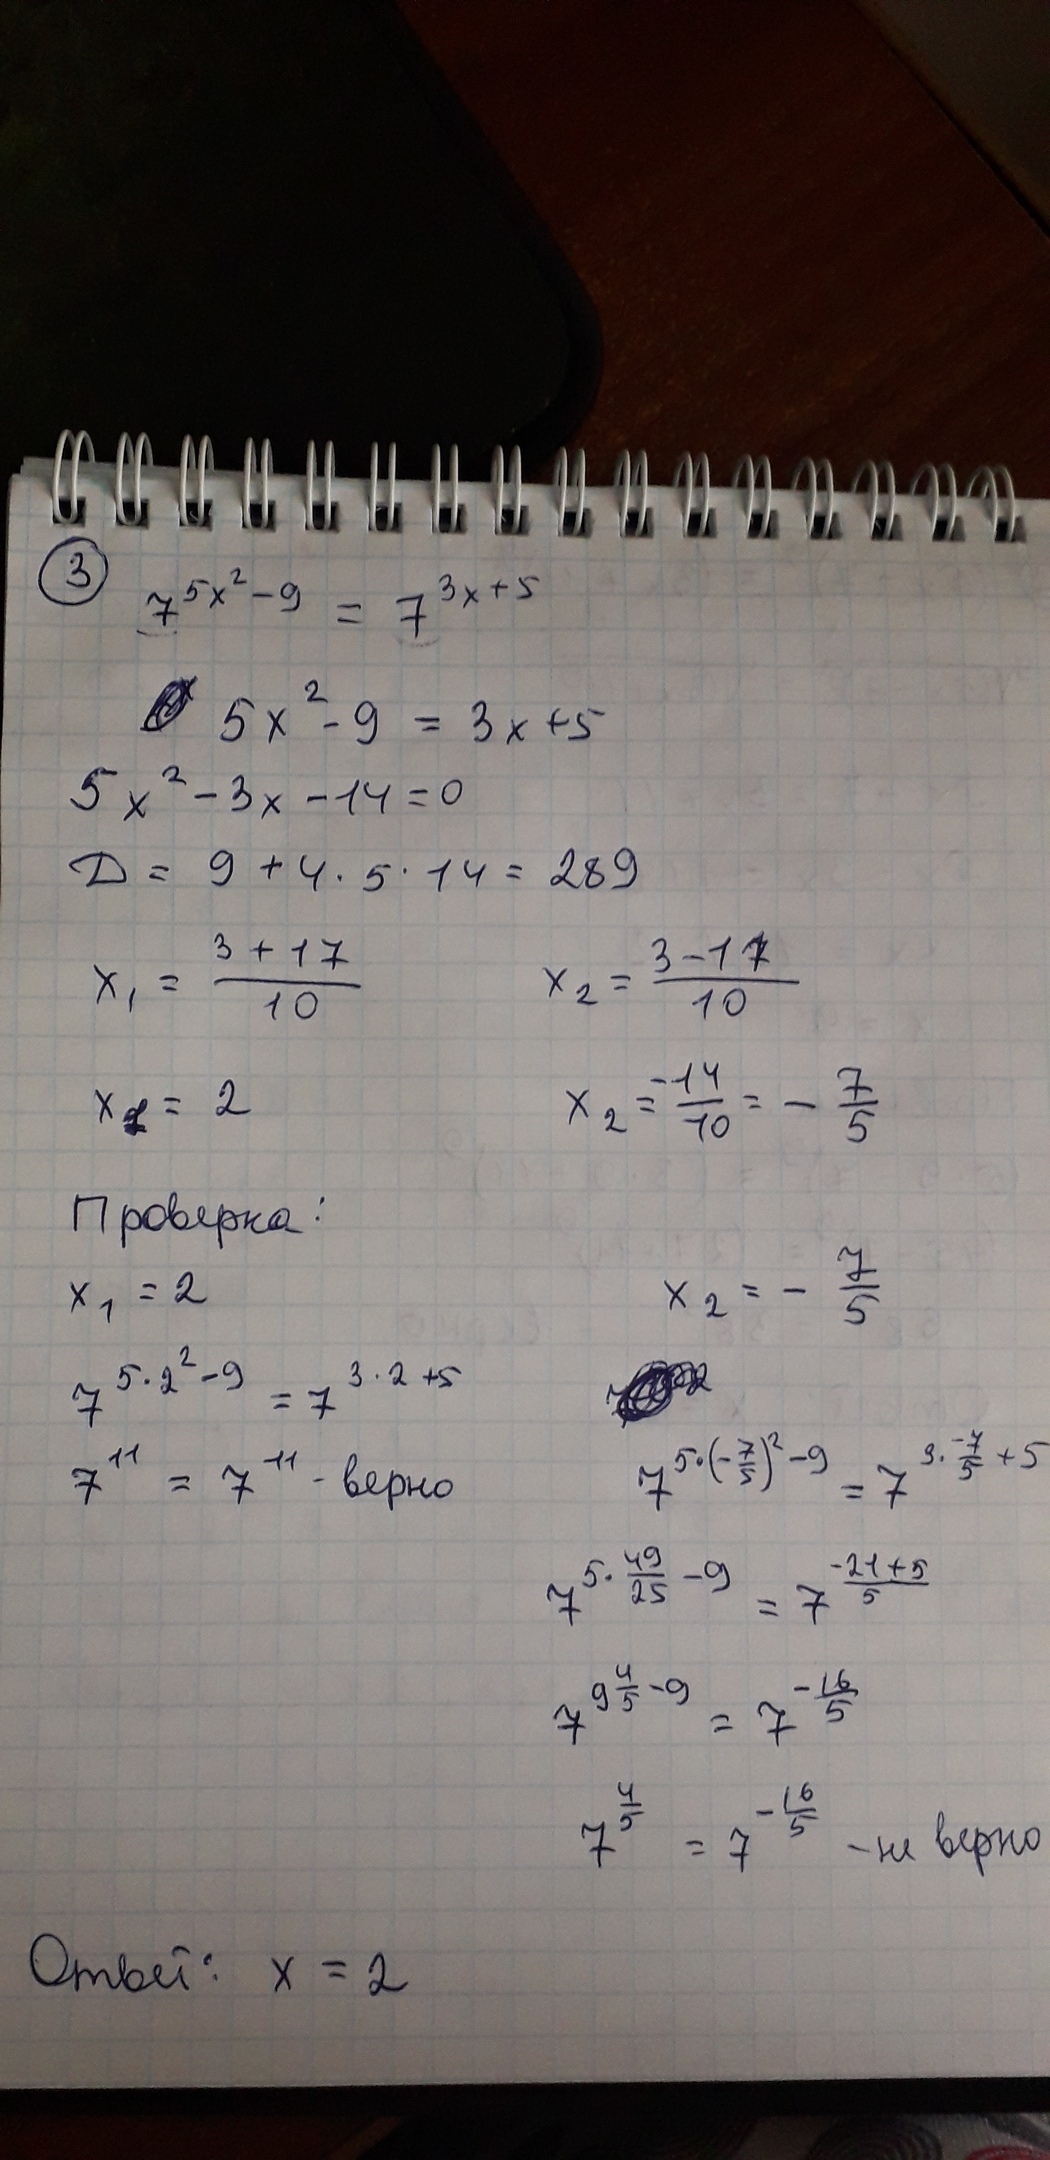 3
7^{5x²-9} = 7^{3x+5}
5x² - 9 = 3x + 5
5x² - 3x - 14 = 0
D = 9 + 4 · 5 · 14 = 289
x₁ = \frac{3+17}{10} x₂ = \frac{3-17}{10}
x₁ = 2 x₂ = \frac{-14}{10} = - \frac{7}{5}
Проверка:
x₁ = 2 x₂ = - \frac{7}{5}
7^{5·2²-9} = 7^{3·2+5}
7^{11} = 7^{11} - верно 7^{5·(-\frac{7}{5})²-9} = 7^{3·\frac{-7}{5}+5}
7^{5·\frac{49}{25}-9} = 7^{\frac{-21+5}{5}}
7^{9\frac{4}{5}-9} = 7^{-\frac{16}{5}}
7^{\frac{4}{5}} = 7^{-\frac{16}{5}} - не верно
Ответ: x = 2